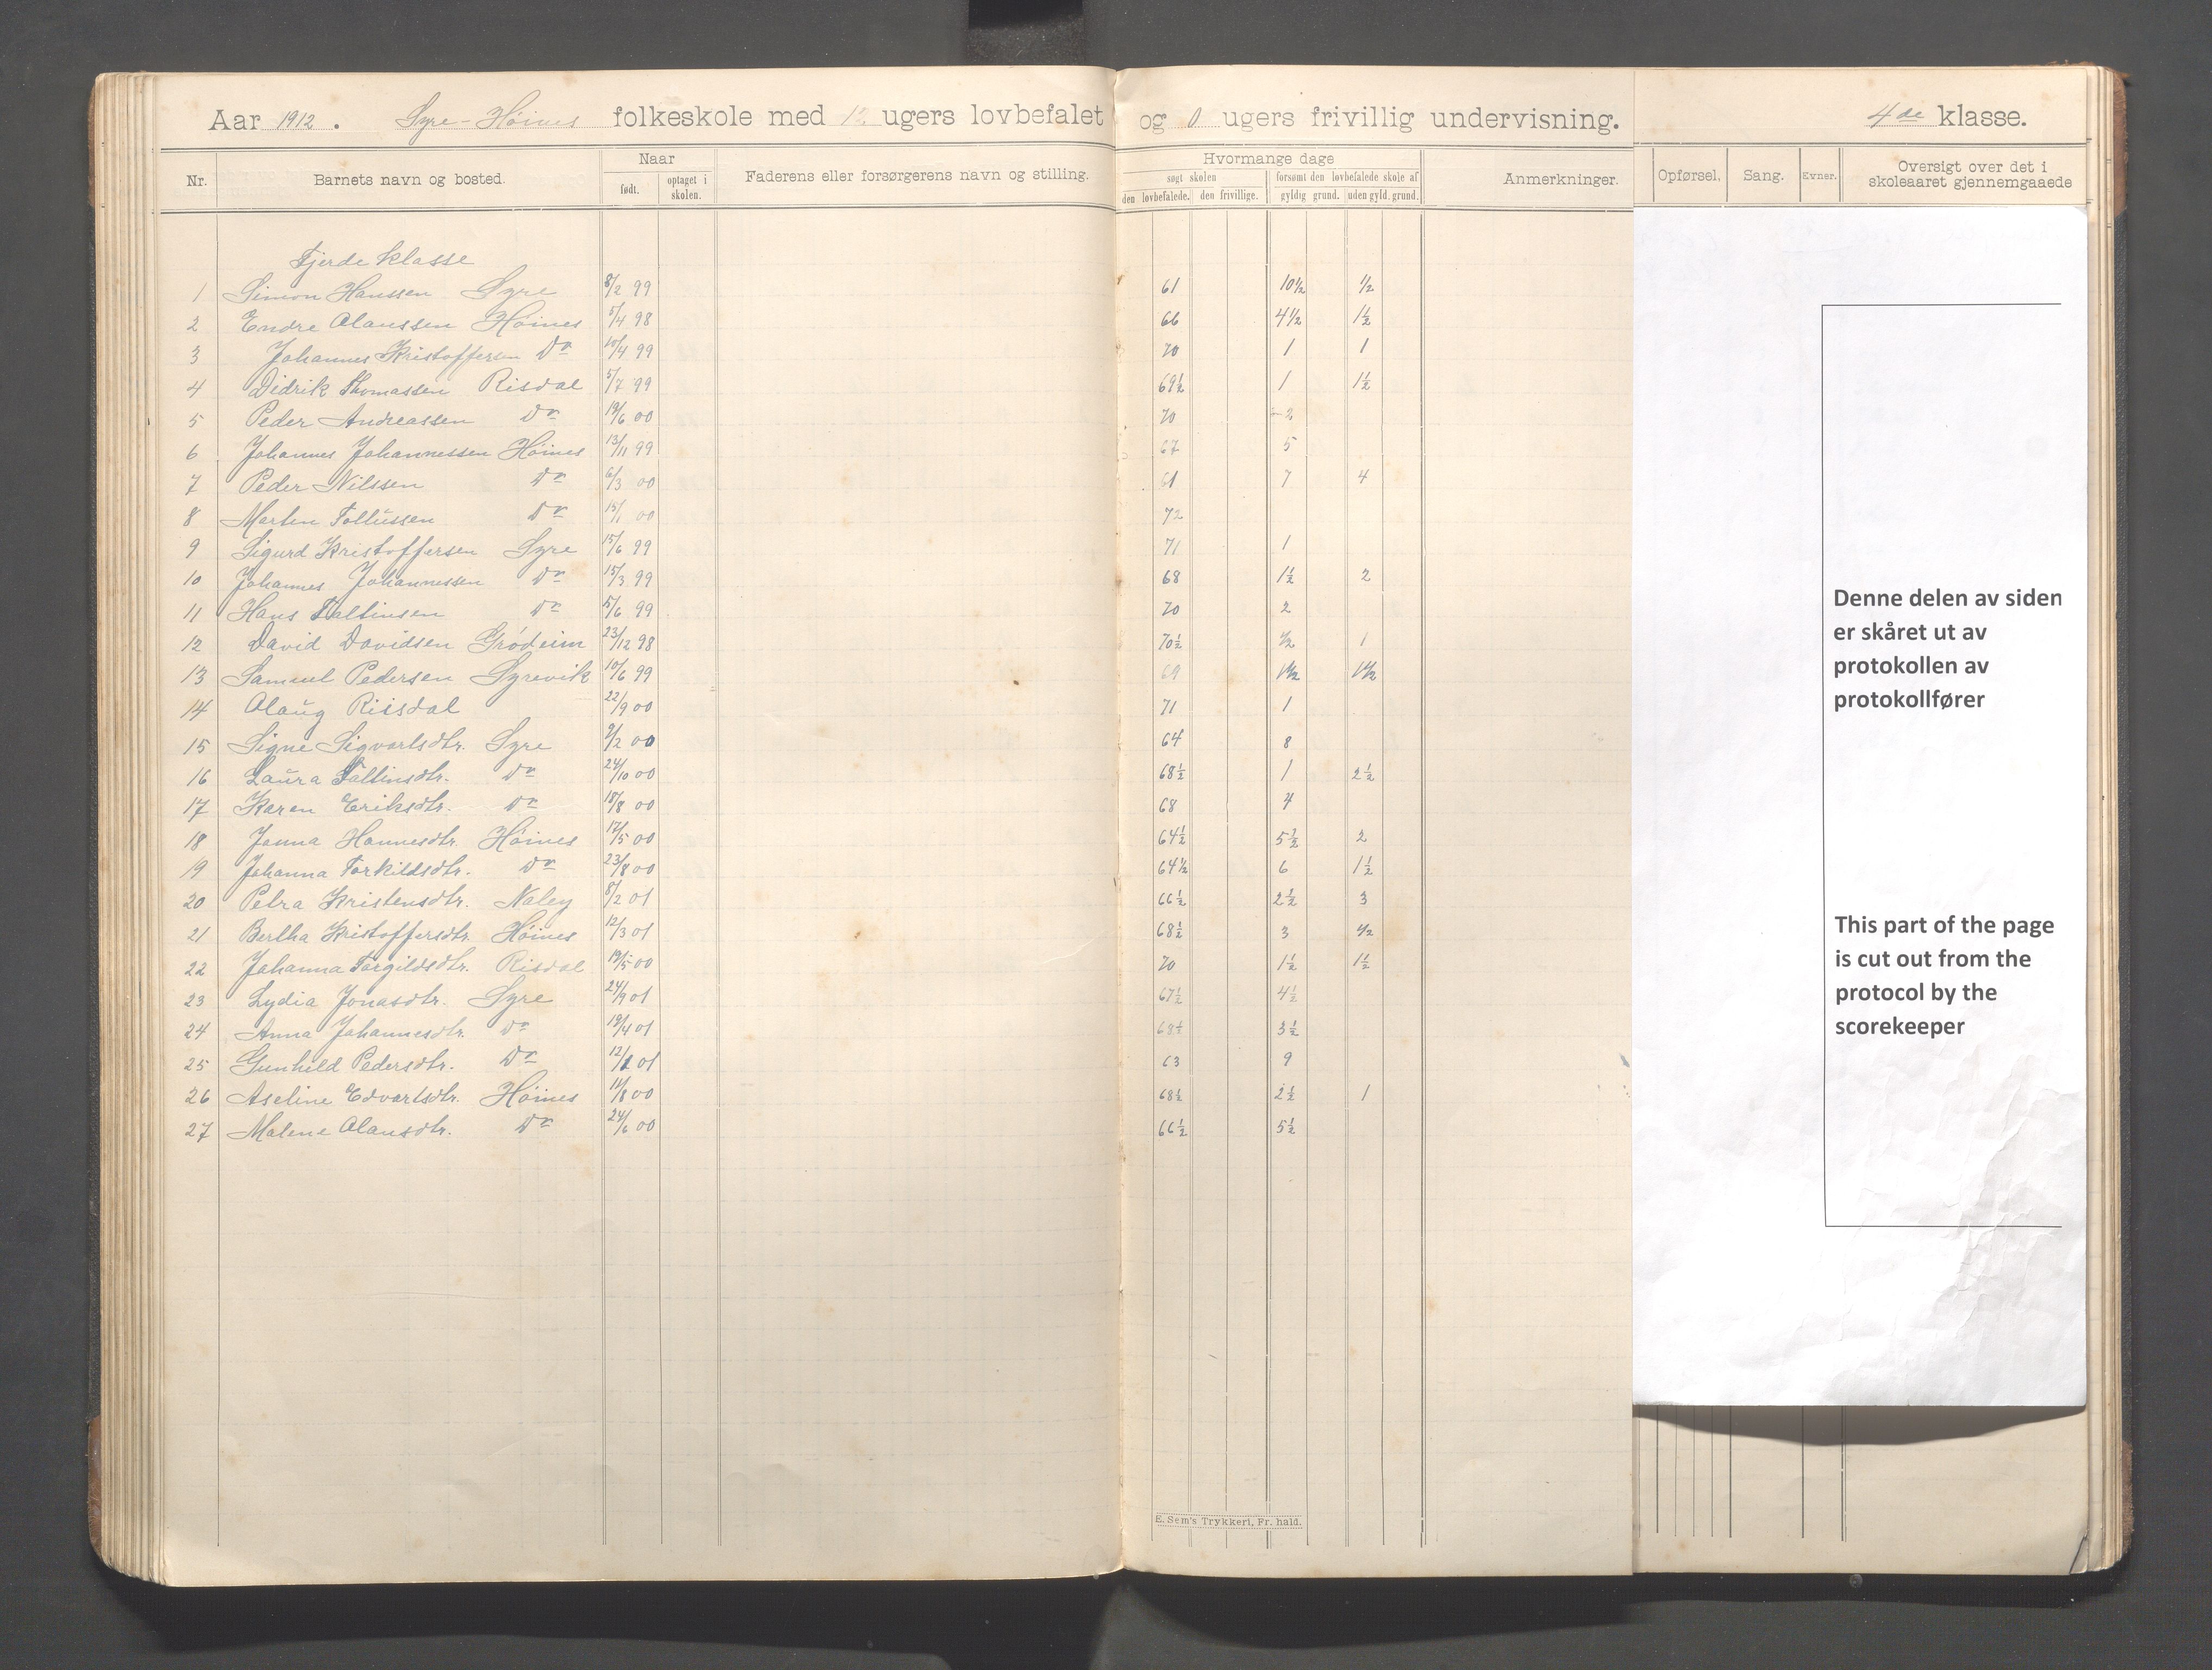 Aar 1912. Syre-Höines folkeskole med 12 ugers lovbefalet og 0 ugers frivillig undervisning. 4de klasse.
Nr. Barnets navn og bosted. Naar født. optaget i skolen. Faderens eller forsørgerens navn og stilling. Hvormange dage søgt skolen den lovbefalede. den frivillige. forsømt den lovbefalede skole af gyldig grund. uden gyld. grund. Anmerkninger. Opførsel. Sang. Evner. Oversigt over det i skoleaaret gjennemgaaede
Fjerde klasse
1 Simon Hanssen Syre 8/2 99 61 10½ ½
2 Endre Olaussen Höines 5/4 98 66 4½ 1½
3 Johannes Kristoffersen Do 10/4 99 70 1 1
4 Didrik Thomassen Risdal 5/7 99 69½ 1 1½
5 Peder Andreassen Do 19/6 00 70 2
6 Johannes Johannessen Höines 13/11 99 67 5
7 Peder Nilssen Do 6/3 00 61 7 4
8 Marten Tollussen Do 15/1 00 72
9 Sigurd Kristoffersen Syre 15/6 99 71 1
10 Johannes Johannessen Do 15/3 99 68 1½ 2
11 Hans Do 5/6 99 70 2
12 David Davidsen Grödeim 23/12 98 70½ ½ 1
13 Samuel Pedersen Syrevik 10/6 99 69 1½ 1½
14 Olaug Riisdal 22/9 00 71 1
15 Signe Sigvartsdtr. Syre 9/2 00 64 8
16 Laura Tallinsdtr. Do 24/10 00 68½ 1 2½
17 Karen Eriksdtr. Do 18/8 00 68 4
18 Janna Hannesdtr. Höines 17/5 00 64½ 5½ 2
19 Johanna Torkildsdtr. Do 23/8 00 64½ 6 1½
20 Petra Kristensdtr. Naley 8/2 01 66½ 2½ 3
21 Bertha Kristoffersdtr. Höines 12/3 01 68½ 3 ½
22 Johanna Torgildsdtr. Risdal 19/5 00 70 1½ 1½
23 Lydia Jonasdtr. Syre 24/9 01 67½ 4½
24 Anna Johannesdtr. Do 19/4 01 68½ 3½
25 Gunhild Pedersdtr. Do 12/1 01 63 9
26 Aseline Edvartsdtr. Höines 11/8 00 68½ 2½ 1
27 Malene Olausdtr. Do 24/6 00 66½ 5½
E. Sem's Trykkeri, Fr. hald.
Denne delen av siden
er skåret ut av
protokollen av
protokollfører
This part of the page
is cut out from the
protocol by the
scorekeeper